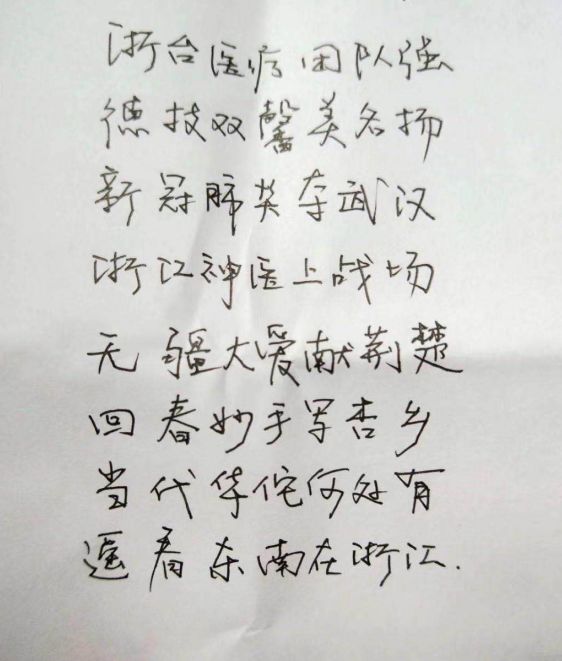 浙台医疗团队强
德技双馨美名扬
新冠肺炎在武汉
浙江神医上战场
无疆大爱献荆楚
回春妙手写杏乡
当代华佗何处有
遥看东南在浙江.